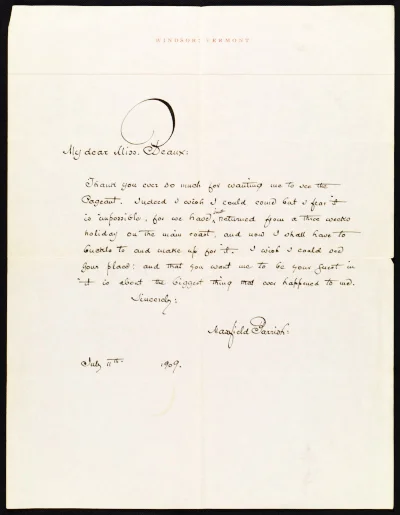 WINDSOR: VERMONT
My dear Miss. Beaux:
Thank you ever so much for wanting me to see the
Pageant. Indeed I wish I could come but I fear it
is impossible, for we have just returned from a three weeks
holiday on the main coast, and now I shall have to
buckle to and make up for it. I wish I could see
your place: and that you want me to be your guest in
it is about the biggest thing that ever happened to me.
Sincerely:
Maxfield Parrish:
July 11th 1909.